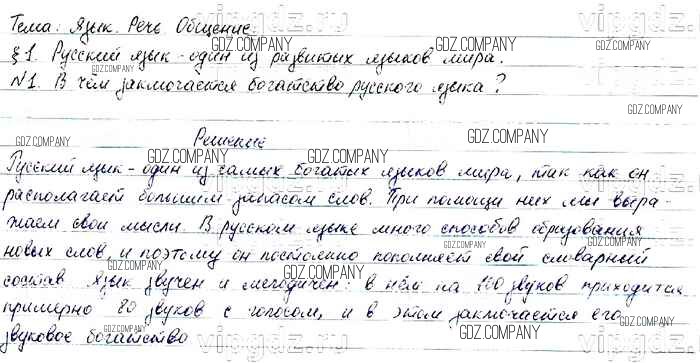 Тема: Язык. Речь. Общение.
§ 1. Русский язык - один из развитых языков мира.
№1. В чём заключается богатство русского языка?
Решение
Русский язык - один из самых богатых языков мира, так как он
располагает большим запасом слов. При помощи них мы выра-
жаем свои мысли. В русском языке много способов образования
новых слов, и поэтому он постоянно пополняет свой словарный
состав. Язык звучен и мелодичен: в нём на 100 звуков приходится
примерно 80 звуков с голосом, и в этом заключается его
звуковое богатство
GDZ.COMPANY
vipgdz.ru